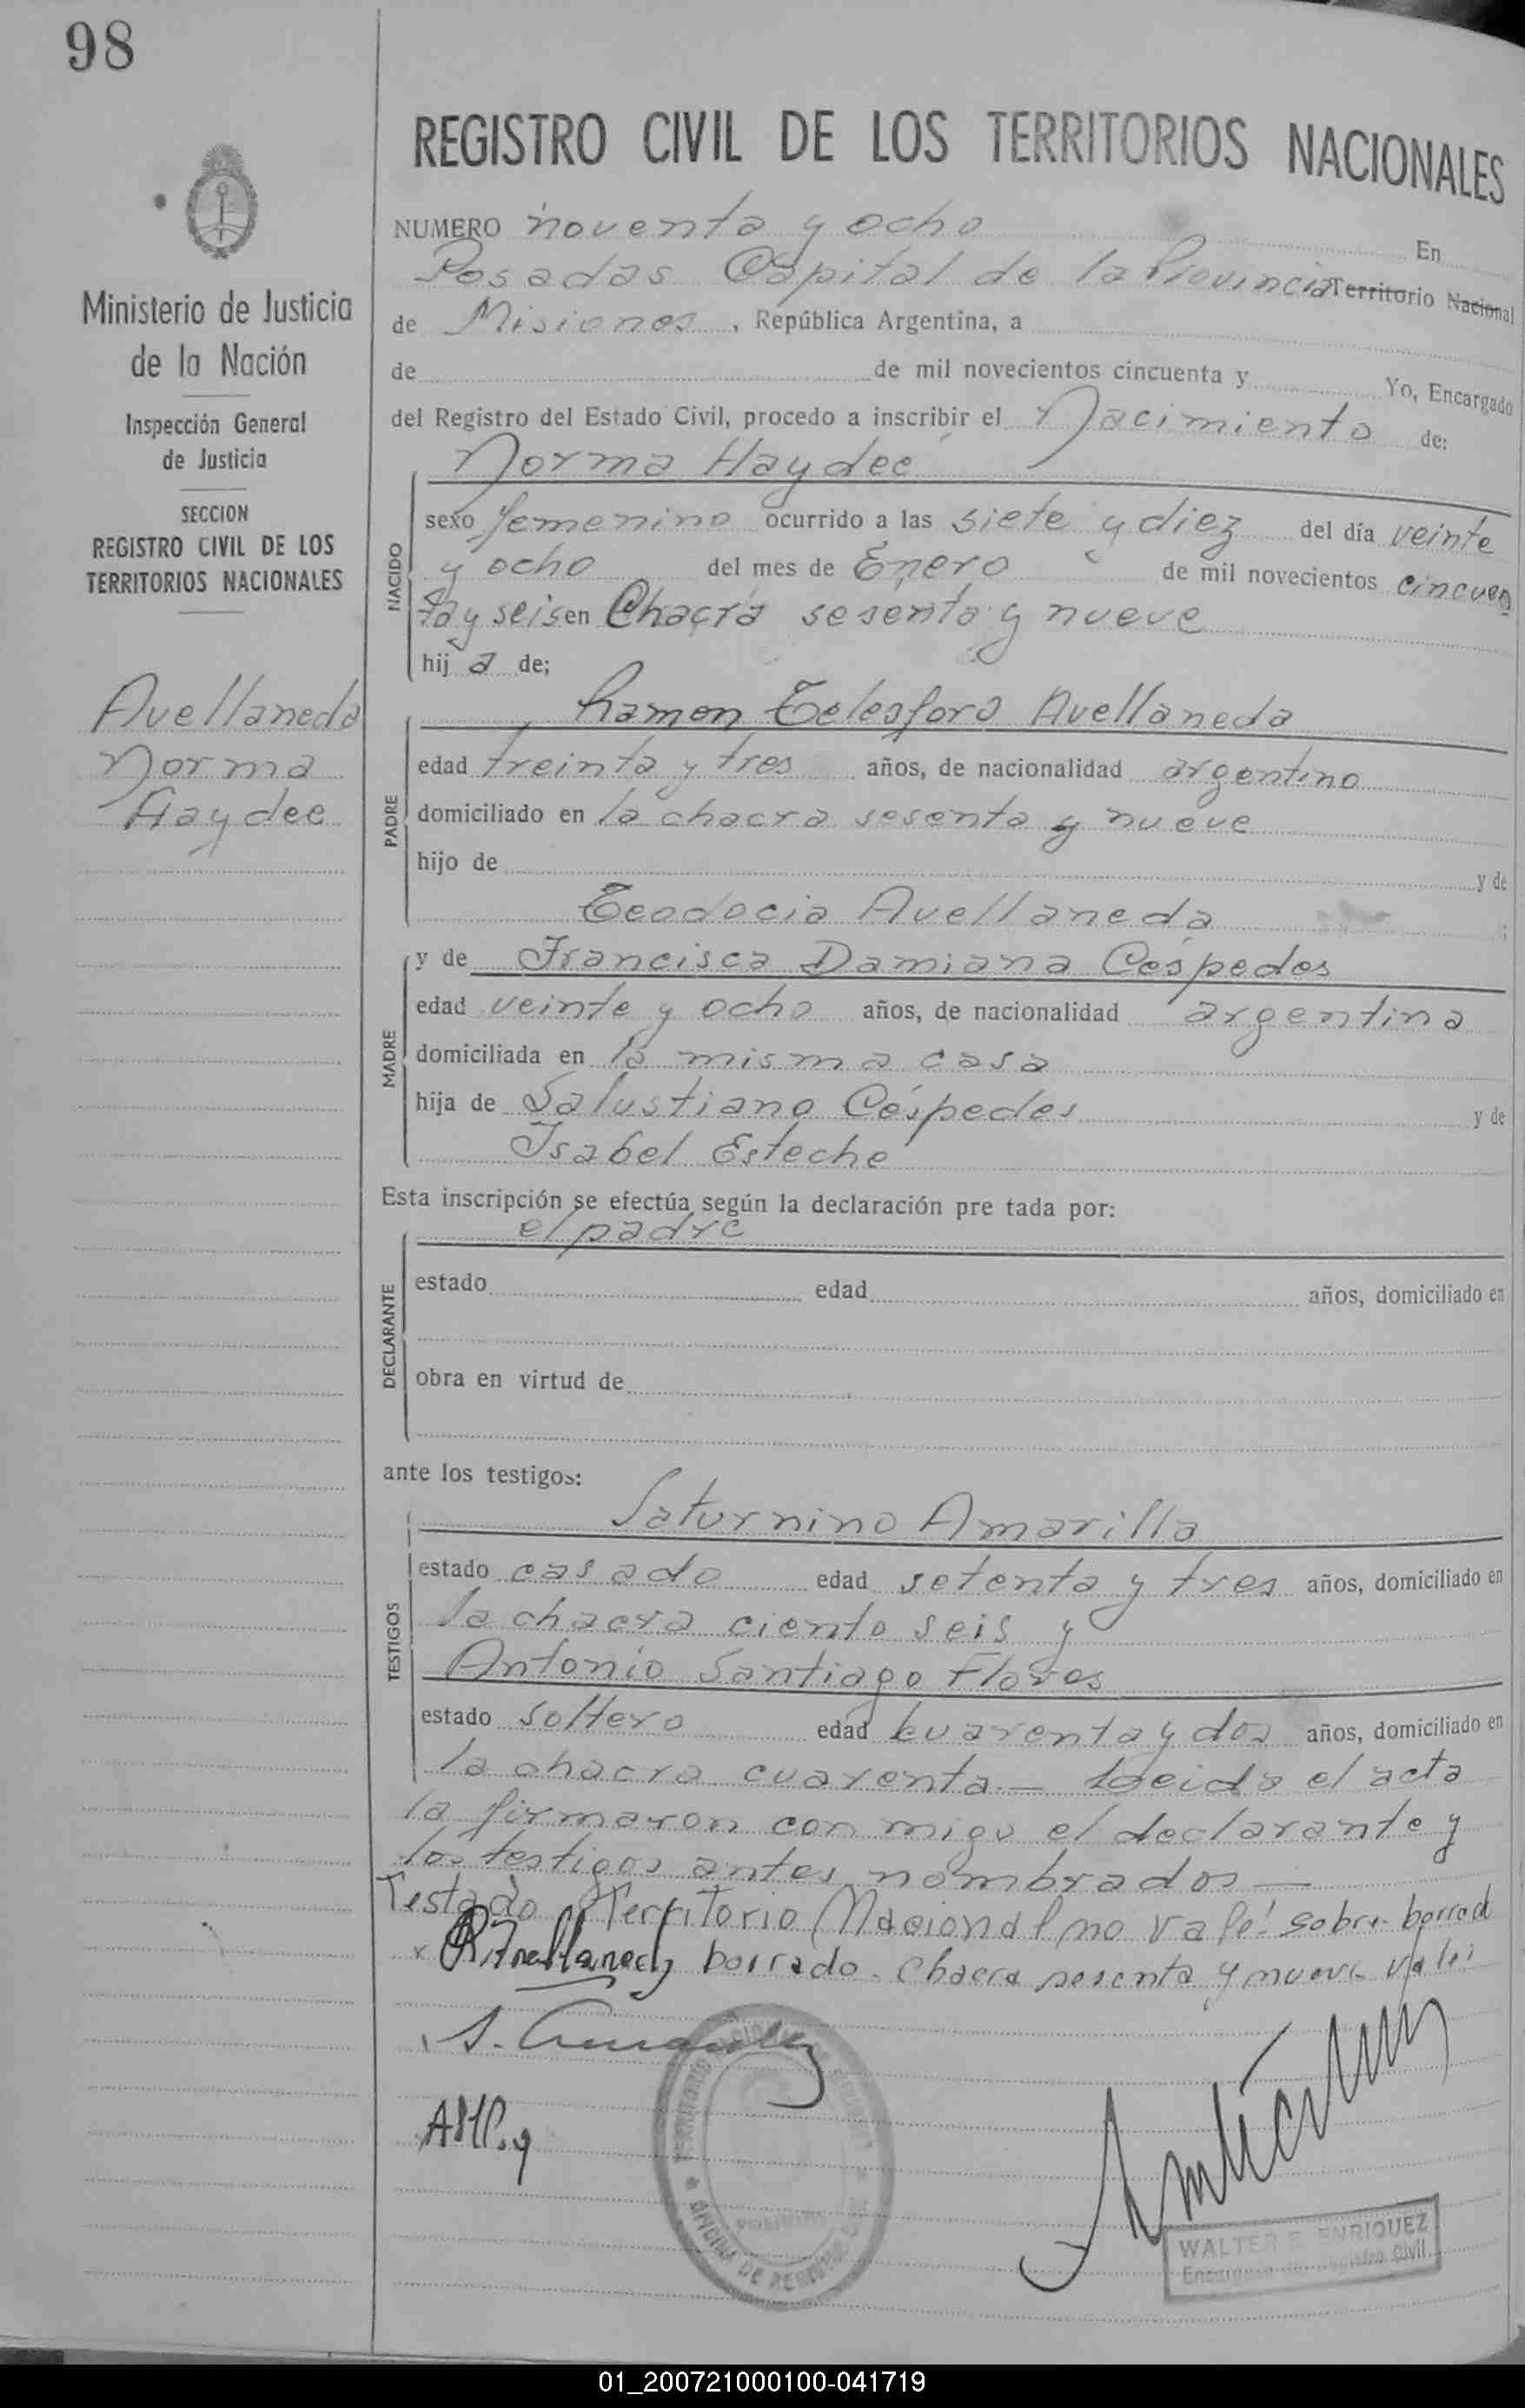 98
REGISTRO CIVIL DE LOS TERRITORIOS NACIONALES
NUMERO noventa y ocho En
Posadas Capital de la Provincia Territorio Nacional
de Misiones, República Argentina, a
de de mil novecientos cincuenta y Yo, Encargado
del Registro del Estado Civil, procedo a inscribir el Nacimiento de:
Norma Haydee
NACIDO
sexo femenino ocurrido a las siete y diez del día veinte
y ocho del mes de Enero de mil novecientos cincuen
ta y seis en Chacra sesenta y nueve
hij a de;
Ramon Telesforo Avellaneda
PADRE
edad treinta y tres años, de nacionalidad argentino
domiciliado en la chacra sesenta y nueve
hijo de y de
Teodocia Avellaneda ;
MADRE
y de Francisca Damiana Céspedes
edad veinte y ocho años, de nacionalidad argentina
domiciliada en la misma casa
hija de Salustiano Céspedes y de
Isabel Esteche
Esta inscripción se efectúa según la declaración pre tada por:
el padre
DECLARANTE
estado edad años, domiciliado en
obra en virtud de
ante los testigos:
Saturnino Amarilla
TESTIGOS
estado casado edad setenta y tres años, domiciliado en
la chacra ciento seis y
Antonio Santiago Flores
estado soltero edad kuarenta y dos años, domiciliado en
la chacra cuarenta — Leida el acta
la firmaron con migo el declarante y
los testigos antes nombrados —
Testado Territorio Nacional no vale: sobre borrad
borrado. Chacra sesenta y nueve vale:
R. Avellaneda
WALTER E. ENRIQUEZ
Encargado del Registro Civil
Ministerio de Justicia
de la Nación
Inspección General
de Justicia
SECCION
REGISTRO CIVIL DE LOS
TERRITORIOS NACIONALES
Avellaneda
Norma
Haydee
01_200721000100-041719